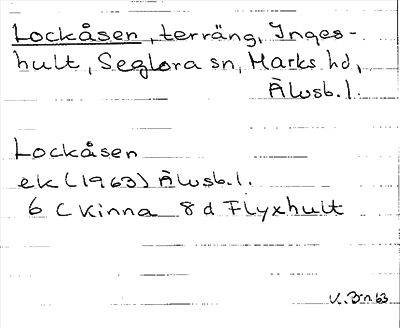 Lockåsen, terräng, Inges-
hult, Seglora sn, Marks hd,
Älvsb. l.
Lockåsen
ek (1963) Älvsb. l.
6 C Kinna 8 d Flyxhult